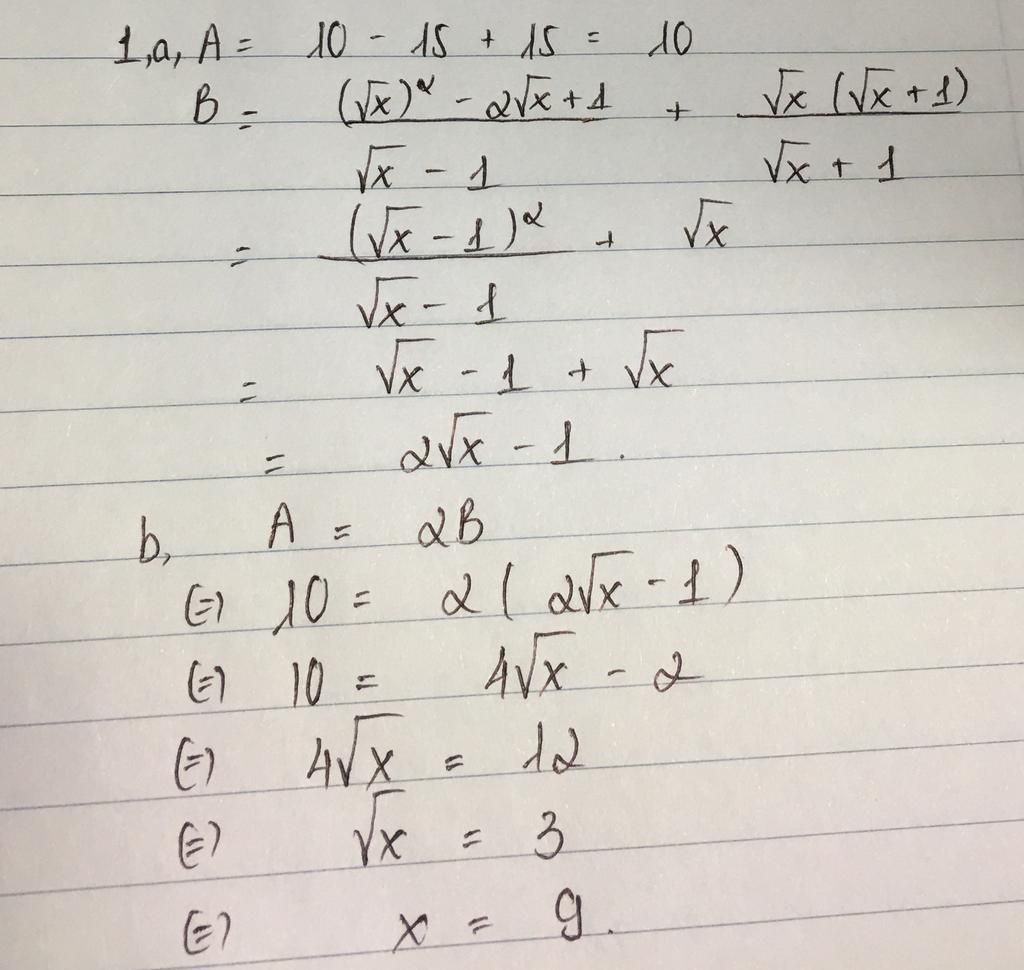 1,a, A = 10 - 15 + 15 = 10
B = ((√x)² - 2√x + 1)/(√x - 1) + (√x (√x + 1))/(√x + 1)
= (√x - 1)²/(√x - 1) + √x
= √x - 1 + √x
= 2√x - 1.
b, A = 2B
(=) 10 = 2( 2√x - 1)
(=) 10 = 4√x - 2
(=) 4√x = 12
(=) √x = 3
(=) x = 9.